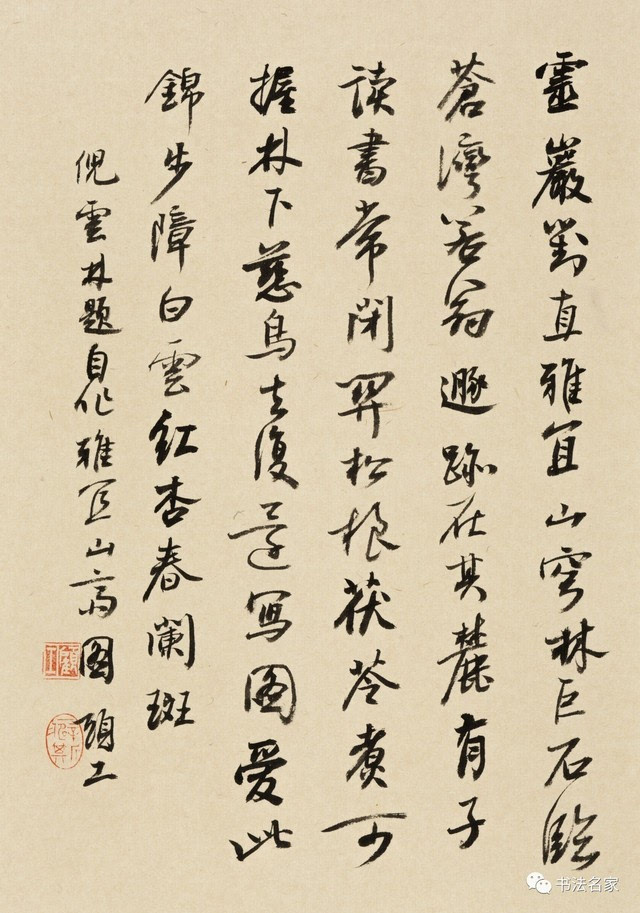 靈巖對直雅宜山穹林巨石臨
蒼灣若翁遯跡在其麓有子
读書常閉関松根茯苓煮可
握林下慈烏去復還寫圖愛此
錦步障白雲紅杏春闌斑
倪雲林題自作雅宜山齋圖 顧工
顧工
书法名家